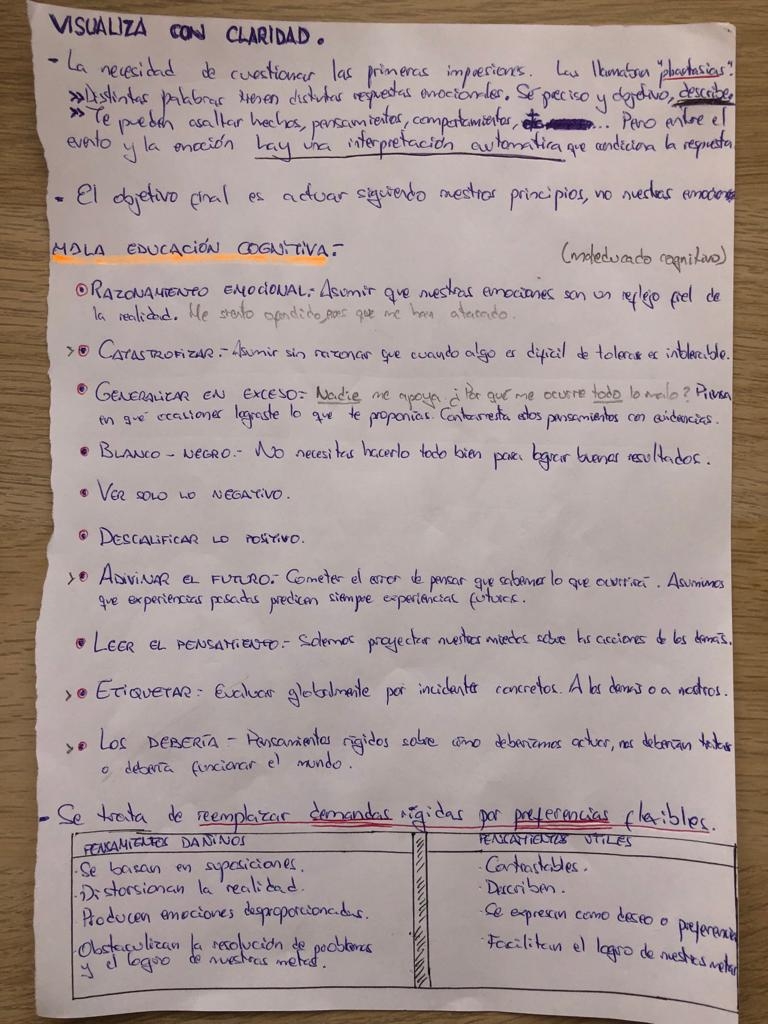 VISUALIZA CON CLARIDAD.
- La necesidad de cuestionar las primeras impresiones. Las llamaban "phantasias".
» Distintas palabras tienen distintas respuestas emocionales. Sé preciso y objetivo, describe.
» Te pueden asaltar hechos, pensamientos, comportamientos, ... Pero entre el
evento y la emoción hay una interpretación automática que condiciona la respuesta
- El objetivo final es actuar siguiendo nuestros principios, no nuestras emociones
MALA EDUCACIÓN COGNITIVA.-
(maleducado cognitivo)
RAZONAMIENTO EMOCIONAL.- Asumir que nuestras emociones son un reflejo fiel de
la realidad. Me siento ofendido, pues que me han atacado.
> CATASTROFIZAR.- Asumir sin razonar que cuando algo es difícil de tolerar es intolerable.
GENERALIZAR EN EXCESO.- Nadie me apoya. ¿Por qué me ocurre todo lo malo? Piensa
en qué ocasiones lograste lo que te proponías. Contrarresta estos pensamientos con evidencias.
BLANCO - NEGRO.- No necesitas hacerlo todo bien para lograr buenos resultados.
VER SOLO LO NEGATIVO.
DESCALIFICAR LO POSITIVO.
> ADIVINAR EL FUTURO.- Cometer el error de pensar que sabemos lo que ocurrirá. Asumimos
que experiencias pasadas predicen siempre experiencias futuras.
LEER EL PENSAMIENTO.- Solemos proyectar nuestros miedos sobre las acciones de los demás.
> ETIQUETAR.- Evaluar globalmente por incidentes concretos. A los demás o a nosotros.
> LOS DEBERÍA - Pensamientos rígidos sobre cómo deberíamos actuar, nos deberían tratar
o debería funcionar el mundo.
- Se trata de reemplazar demandas rígidas por preferencias flexibles.
PENSAMIENTOS DAÑINOS
· Se basan en suposiciones.
· Distorsionan la realidad.
· Producen emociones desproporcionadas.
· Obstaculizan la resolución de problemas
y el logro de nuestras metas.
PENSAMIENTOS ÚTILES
· Contrastables.
· Describen.
· Se expresan como deseo o preferencia
· Facilitan el logro de nuestras metas